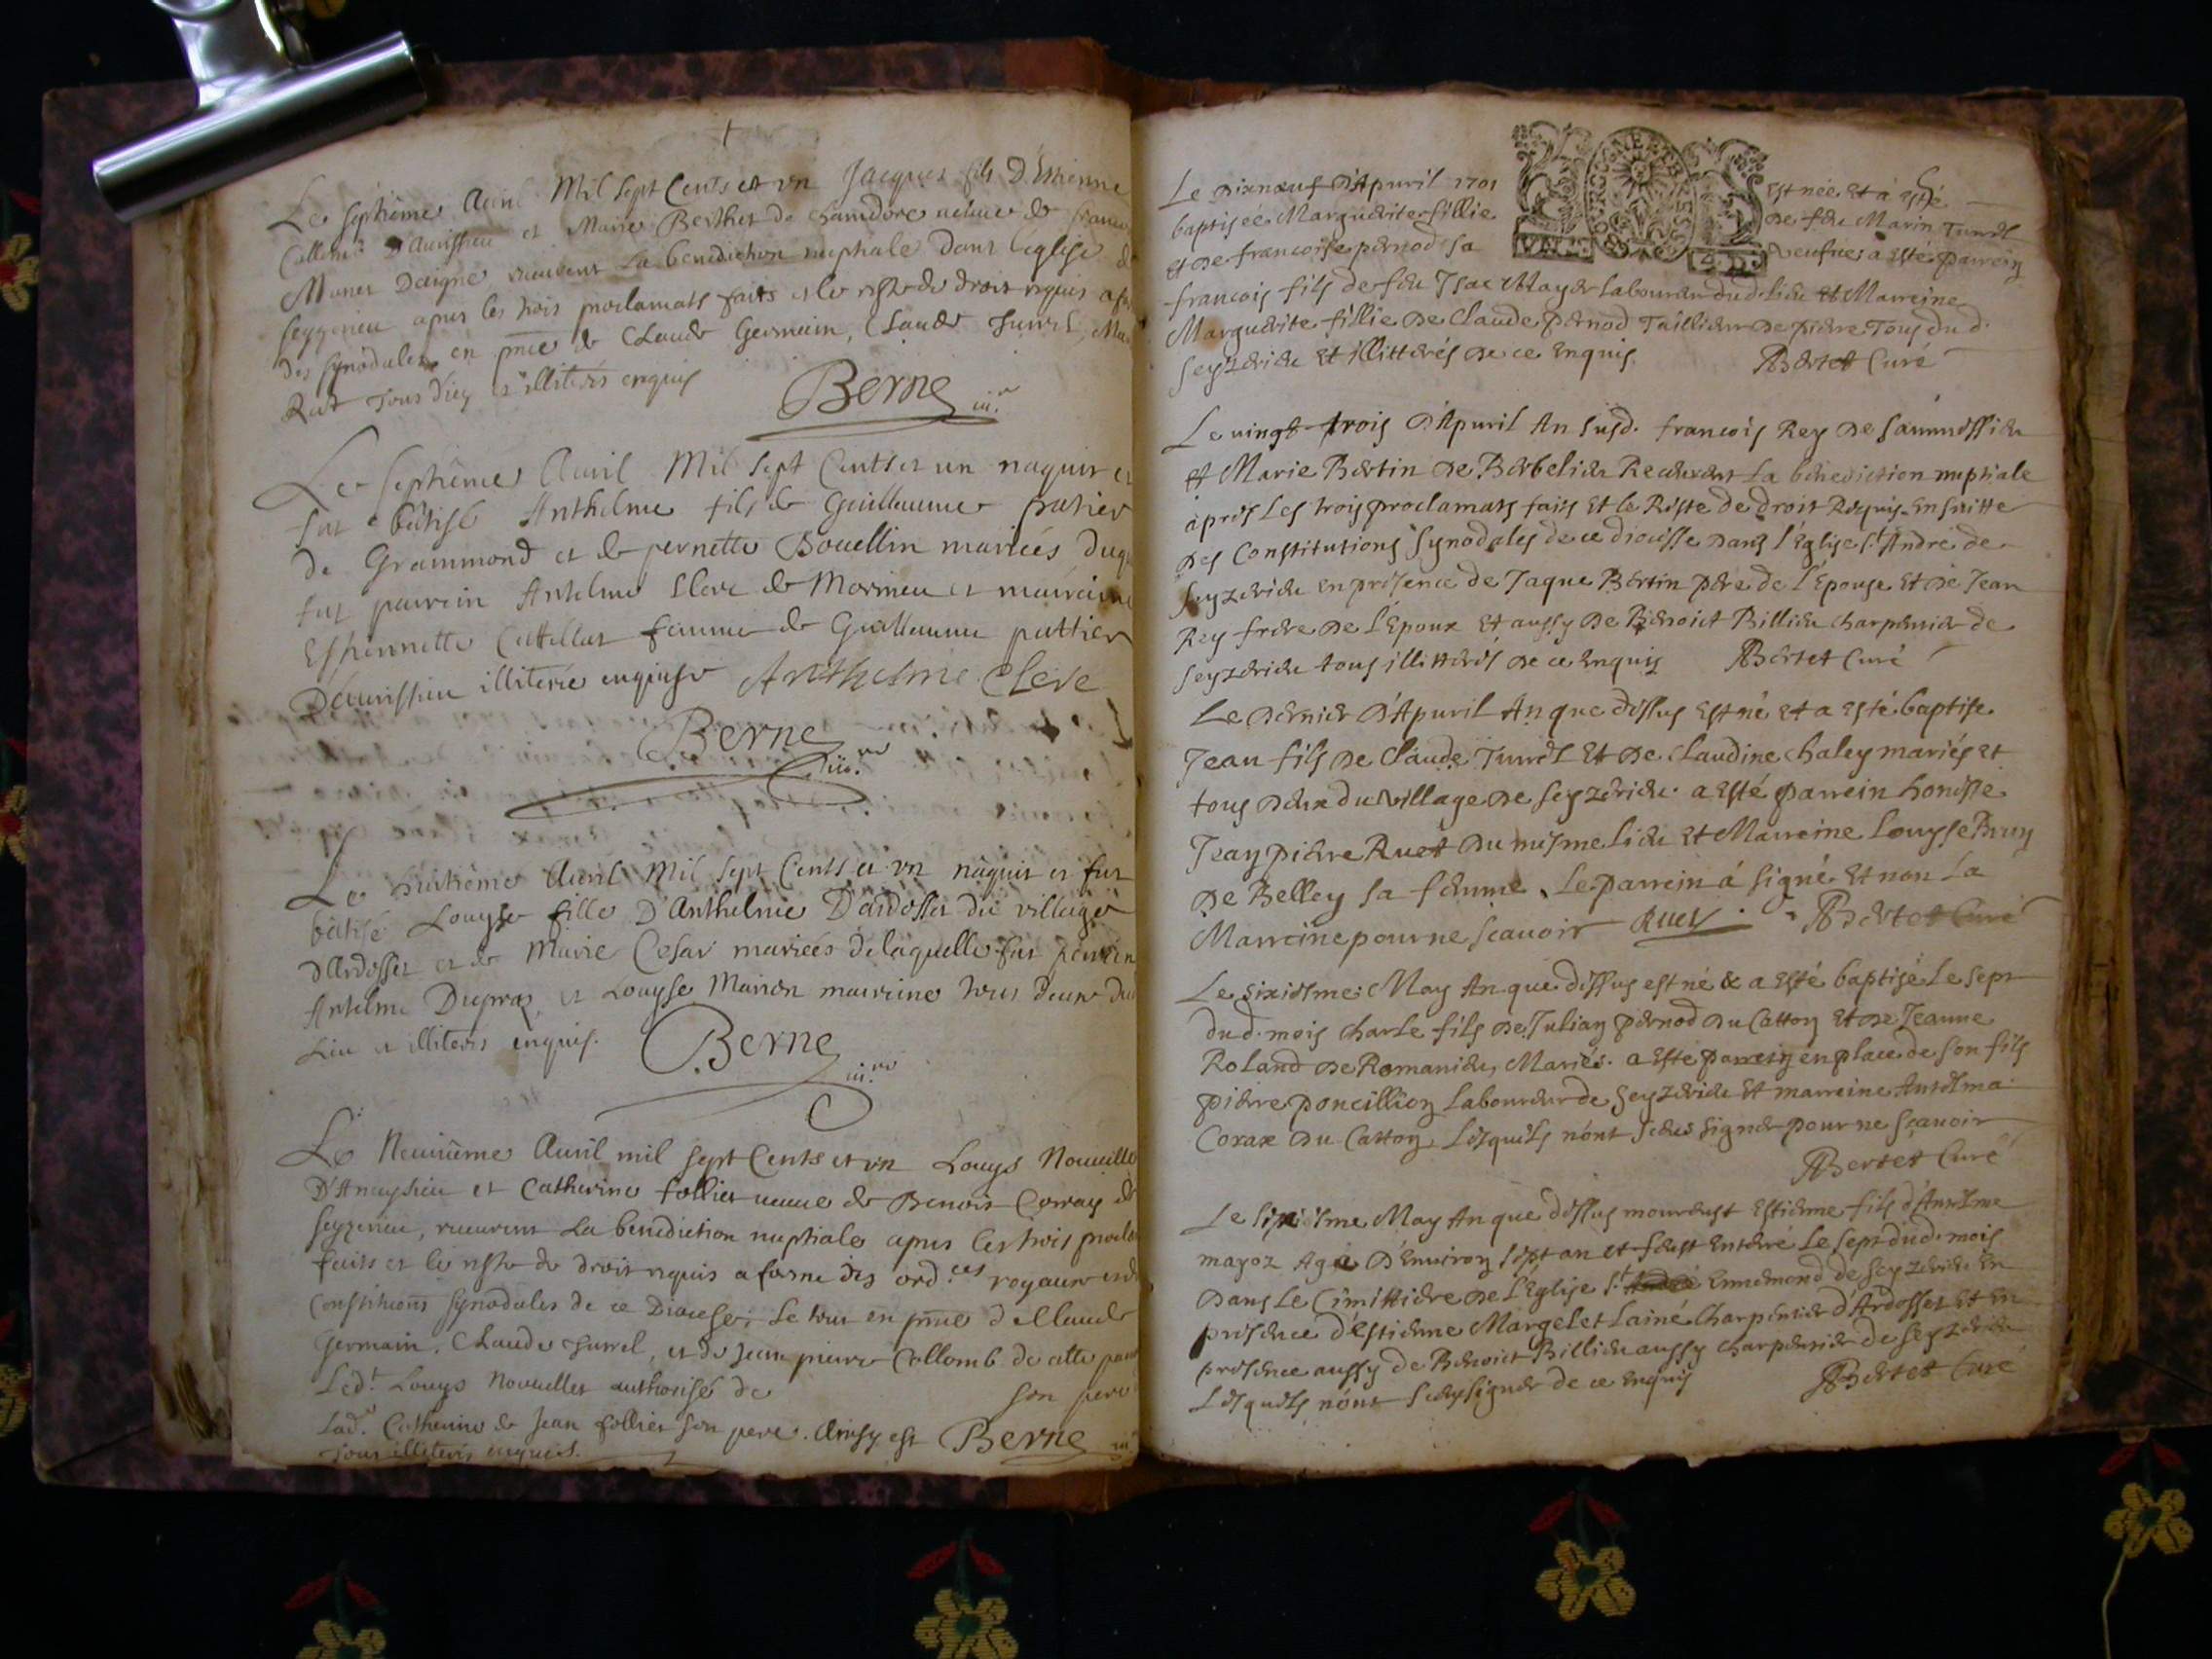 Le septième Avril Mil sept Cents et vn Jacques fils D'Estienne
et Marie Berthet de Chamdore veuue de
receurent La benediction nuptiale dans l'eglise
apres les trois proclamats faits et le reste de droit requis
des synodales en pnce de Claude Germain, Claude Turrel,
Rut Tous dicy et illiterés enquis
Berne
Le septième Avril Mil sept Cents et un naquit et
fut bâtisé Anthelme fils de Guillaume fratier
de Grammond et de pernette Bouellin mariés
fut parrein Antelme Cleve de Mormieu et marraine
Espennette Cattellat femme de Guillaume pattier
D'aurissieu illiterée enquise Anthelme Cleve
Berne
Le huitième Avril Mil sept Cents et vn naquit et fut
bâtisé Louyse fille D'Anthelme D'ardosset du village
D'Ardosset et de Marie Cesar mariées de laquelle fut parrein
Antelme Dupraz et Louyse Marion marreine tous deux dud
Lieu et illiterés enquis. Berne
Le Neuvième Avril mil sept Cents et vn Louys Nouueille
D'Anaysieu et Catherine follier veuue de Benoit Corray de
Seyzerieu, receurent La benediction nuptiale apres les trois
faits et le reste de droit requis a forme des ord.ces royaux et de
Constitutions synodales de ce Diocese; Le tout en pnce de Claude
Germain, Claude Turrel, et de Jean pierre Collomb de cette
Led.t Louys Nouuelles authorisé de son pere
Lad.e Catherine de Jean follier son pere. Ainsy est Berne
Tous illiterés enquis.
Le dixneuf d'Apuril 1701 est née et à esté
baptiseé Marguerite fillie de feu Marin Turrel
et de francoise pernod sa veufue a esté parrein
francois fils de feu Isac Mayer Laboureur dud. Lieu et Marreine
Marguerite fillie de Claude pernod Taillieur de pierre Tous dud.
Seyzerieu et illitterés de ce Enquis. Bertet Curé
Le uingt trois d'Apuril An susd. francois Rey de
et Marie Bertin de Berbelieu Receuerent La benediction nuptiale
àpres Les trois proclamats faits et le Reste de droit Requis En suitte
des Constitutions Synodales de ce diocesse dans l'Eglise S.t André de
Seyzerieu en presence de Jaque Bertin pere de l'Epouse et de Jean
Rey frere de l'Epoux et aussy de Benoict Billieu charpentier de
Seyzerieu tous illitterés de ce Enquis Bertet Curé
Le dernier d'Apuril An que dessus est né et a esté baptise
Jean fils de Claude Turrel et de Claudine Chaley mariés et
tous deux du village de Seyzerieu. a esté parrein honeste
Jean pierre Ruet du mesme Lieu et Marreine Louyse Brun
de Belley sa femme. Le parrein á signé et non La
Marreine pour ne scauoir Ruet Bertet Curé
Le sixiesme May An que dessus est né & a esté baptisé Le sept
dud. mois Charle fils de Julian pernod du Catton et de Jeanne
Roland de Romanieu, Mariés. a esté parrein en place de son fils
pierre poncillion Laboureur de Seyzerieu et marreine Antelma
Corax du Catton Lesquels n'ont sceus signer pour ne scauoir
Bertet Curé
Le sixiesme May An que dessus mourust Estienne fils d'Antelme
mayoz Agé d'Enuiron sept an et feust Enterré Le sept dud. mois
dans Le Cimittiere de l'Eglise S.t Ennemond de Seyzerieu En
presence d'Estienne Margelet Lainé Charpentier d'Ardosset et en
presence aussy de Benoict Billieu aussy charpentier de Seyzerieu
Lesquels n'ont sceu signer de ce enquis Bertet Curé